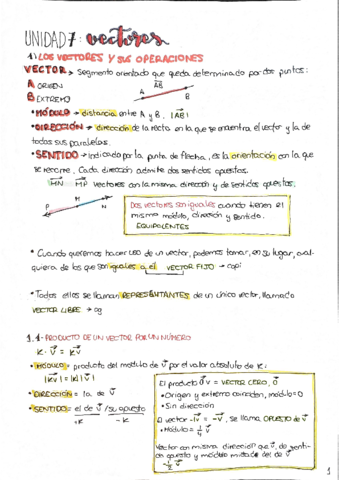 UNIDAD 7: vectores
1) LOS VECTORES Y SUS OPERACIONES
VECTOR → Segmento orientado que queda determinado por dos puntos:
A ORIGEN
AB
B EXTREMO
A
B
• MÓDULO → distancia entre A y B. |AB|
• DIRECCIÓN → dirección de la recta en la que se encuentra el vector y la de
todas sus paralelas.
• SENTIDO → indicado por la punta de flecha, es la orientación con la que
se recorre. Cada dirección admite dos sentidos opuestos.
MN MP vectores con la misma dirección y de sentidos opuestos.
P
M
N
Dos vectores son iguales cuando tienen el
mismo módulo, dirección y sentido.
EQUIPOLENTES
• Cuando queremos hacer uso de un vector, podemos tomar, en su lugar, cual-
quiera de los que son iguales a él. VECTOR FIJO →
• Todos ellos se llaman REPRESENTANTES de un único vector, llamado
VECTOR LIBRE →
1.1- PRODUCTO DE UN VECTOR POR UN NÚMERO
K · V = KV
• MÓDULO = producto del módulo de V por el valor absoluto de K:
|KV| = |K| |V|
• DIRECCIÓN = la de V
• SENTIDO = el de V / su opuesto
K
-K
El producto 0V = VECTOR CERO, 0
• Origen y extremo coinciden, módulo=0
• Sin dirección
El vector -1V = -V, se llama OPUESTO de V
• Módulo =
Vector con misma dirección que V, de senti-
do opuesto y módulo mitad del de V
1